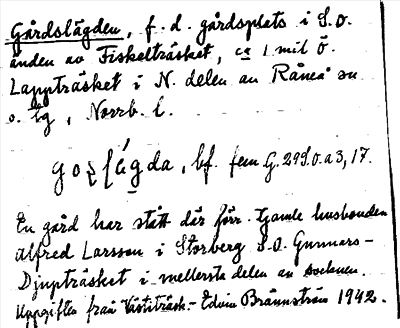 Gårdslägden, f. d. gårdsplats i S.O.
änden av Fiskelträsket, ca 1 mil ö.
Lappträsket i N. delen av Råneå sn
o. tg, Norrb. l.
bf. fem G. 29 S.O. a 3, 17.
En gård har stått där förr. Gamle husbonden
Alfred Larsson i Storberg S.O. Gunnars-
Djupträsket i mellersta delen av socknen.
Uppgiften från Västiträsk. - Edvin Brännström 1942.